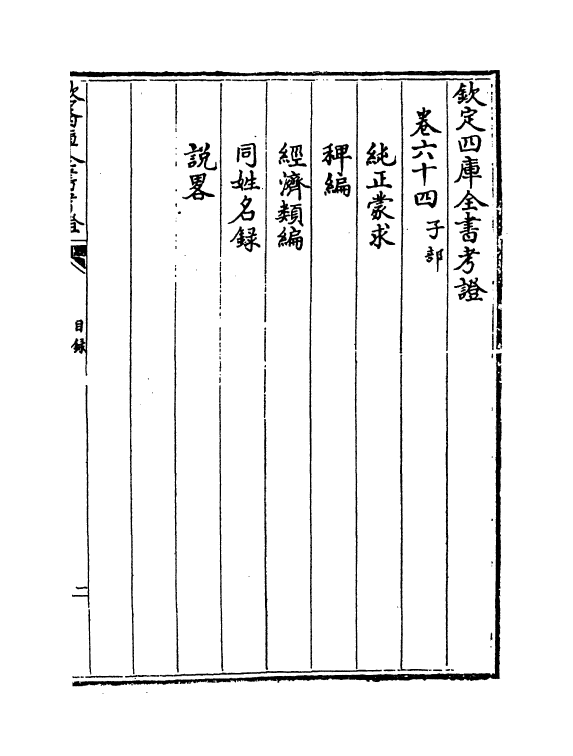 欽定四庫全書考證
卷六十四 子部
純正蒙求
稗編
經濟類編
同姓名録
說畧
欽定四庫全書考證
目録
二